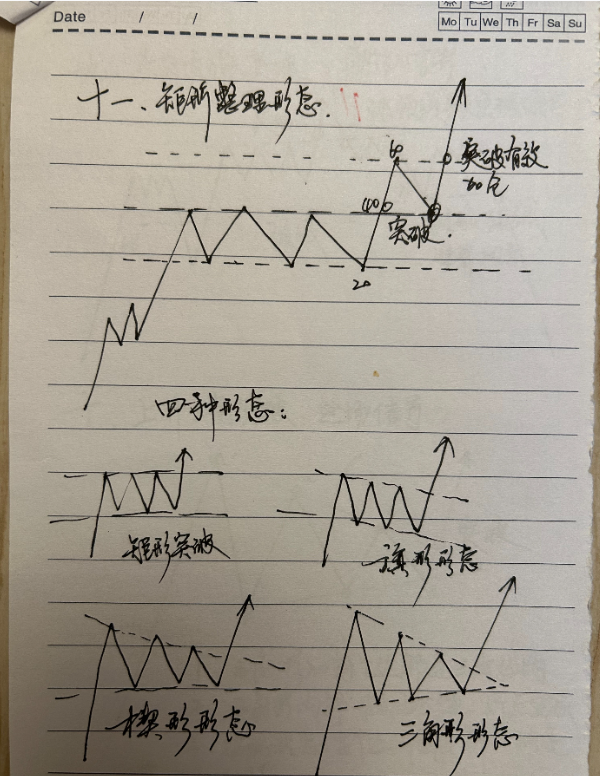 Date / /
Mo Tu We Th Fr Sa Su
十一、矩形整理形态. 11
60
突破有效
100 突破.
20
四种形态:
矩形突破
旗形形态
楔形形态
三角形形态